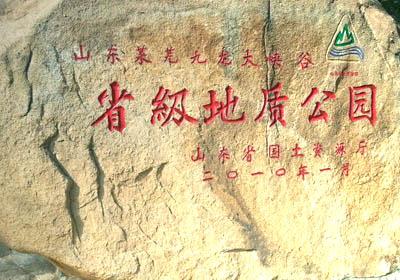 山东莱芜九龙大峡谷
省級地质公园
山东省国土资源厅
二〇一〇年一月